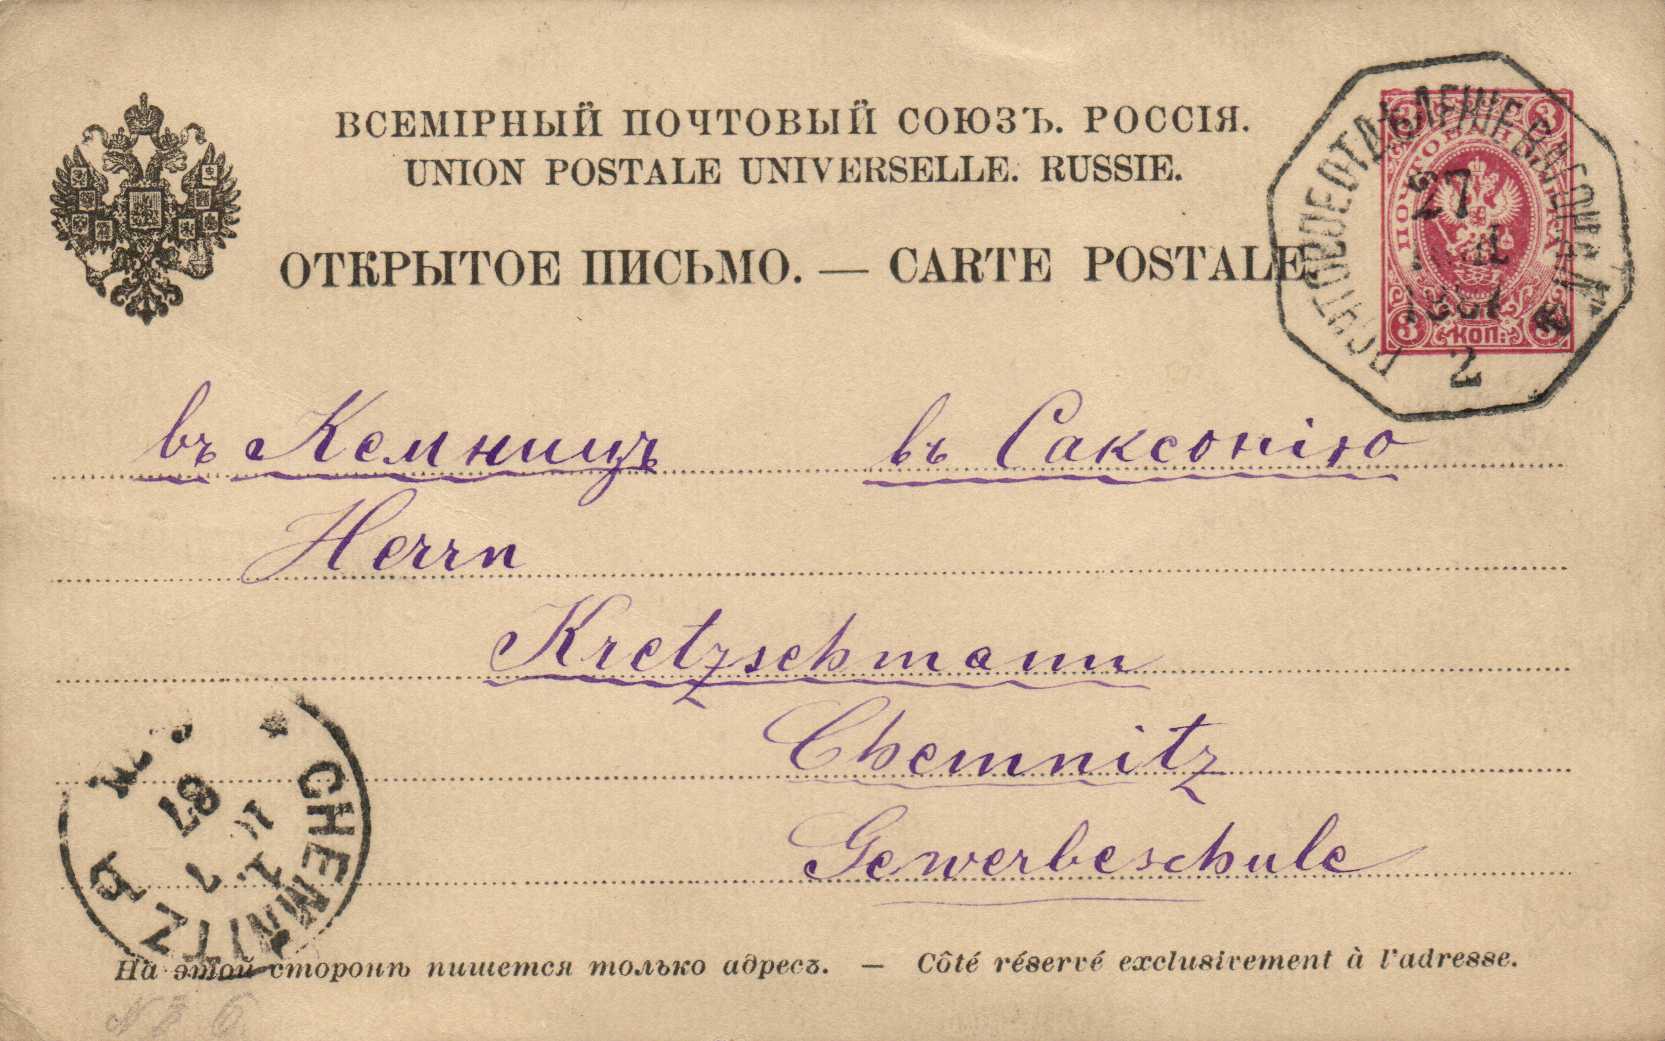 ВСЕМІРНЫЙ ПОЧТОВЫЙ СОЮЗЪ. РОССІЯ.
UNION POSTALE UNIVERSELLE. RUSSIE.
ОТКРЫТОЕ ПИСЬМО. — CARTE POSTALE
ПОЧТОВОЕ ОТДѢЛЕНІЕ ВАГОНА
27
2
3 3
ПОЧТОВАЯ МАРКА
3 КОП: 3
въ Кемницъ въ Саксонію
Herrn
Kretzschmann
Chemnitz
Gewerbeschule
* CHEMNITZ
87
На этой сторонѣ пишется только адресъ. — Côté réservé exclusivement à l'adresse.